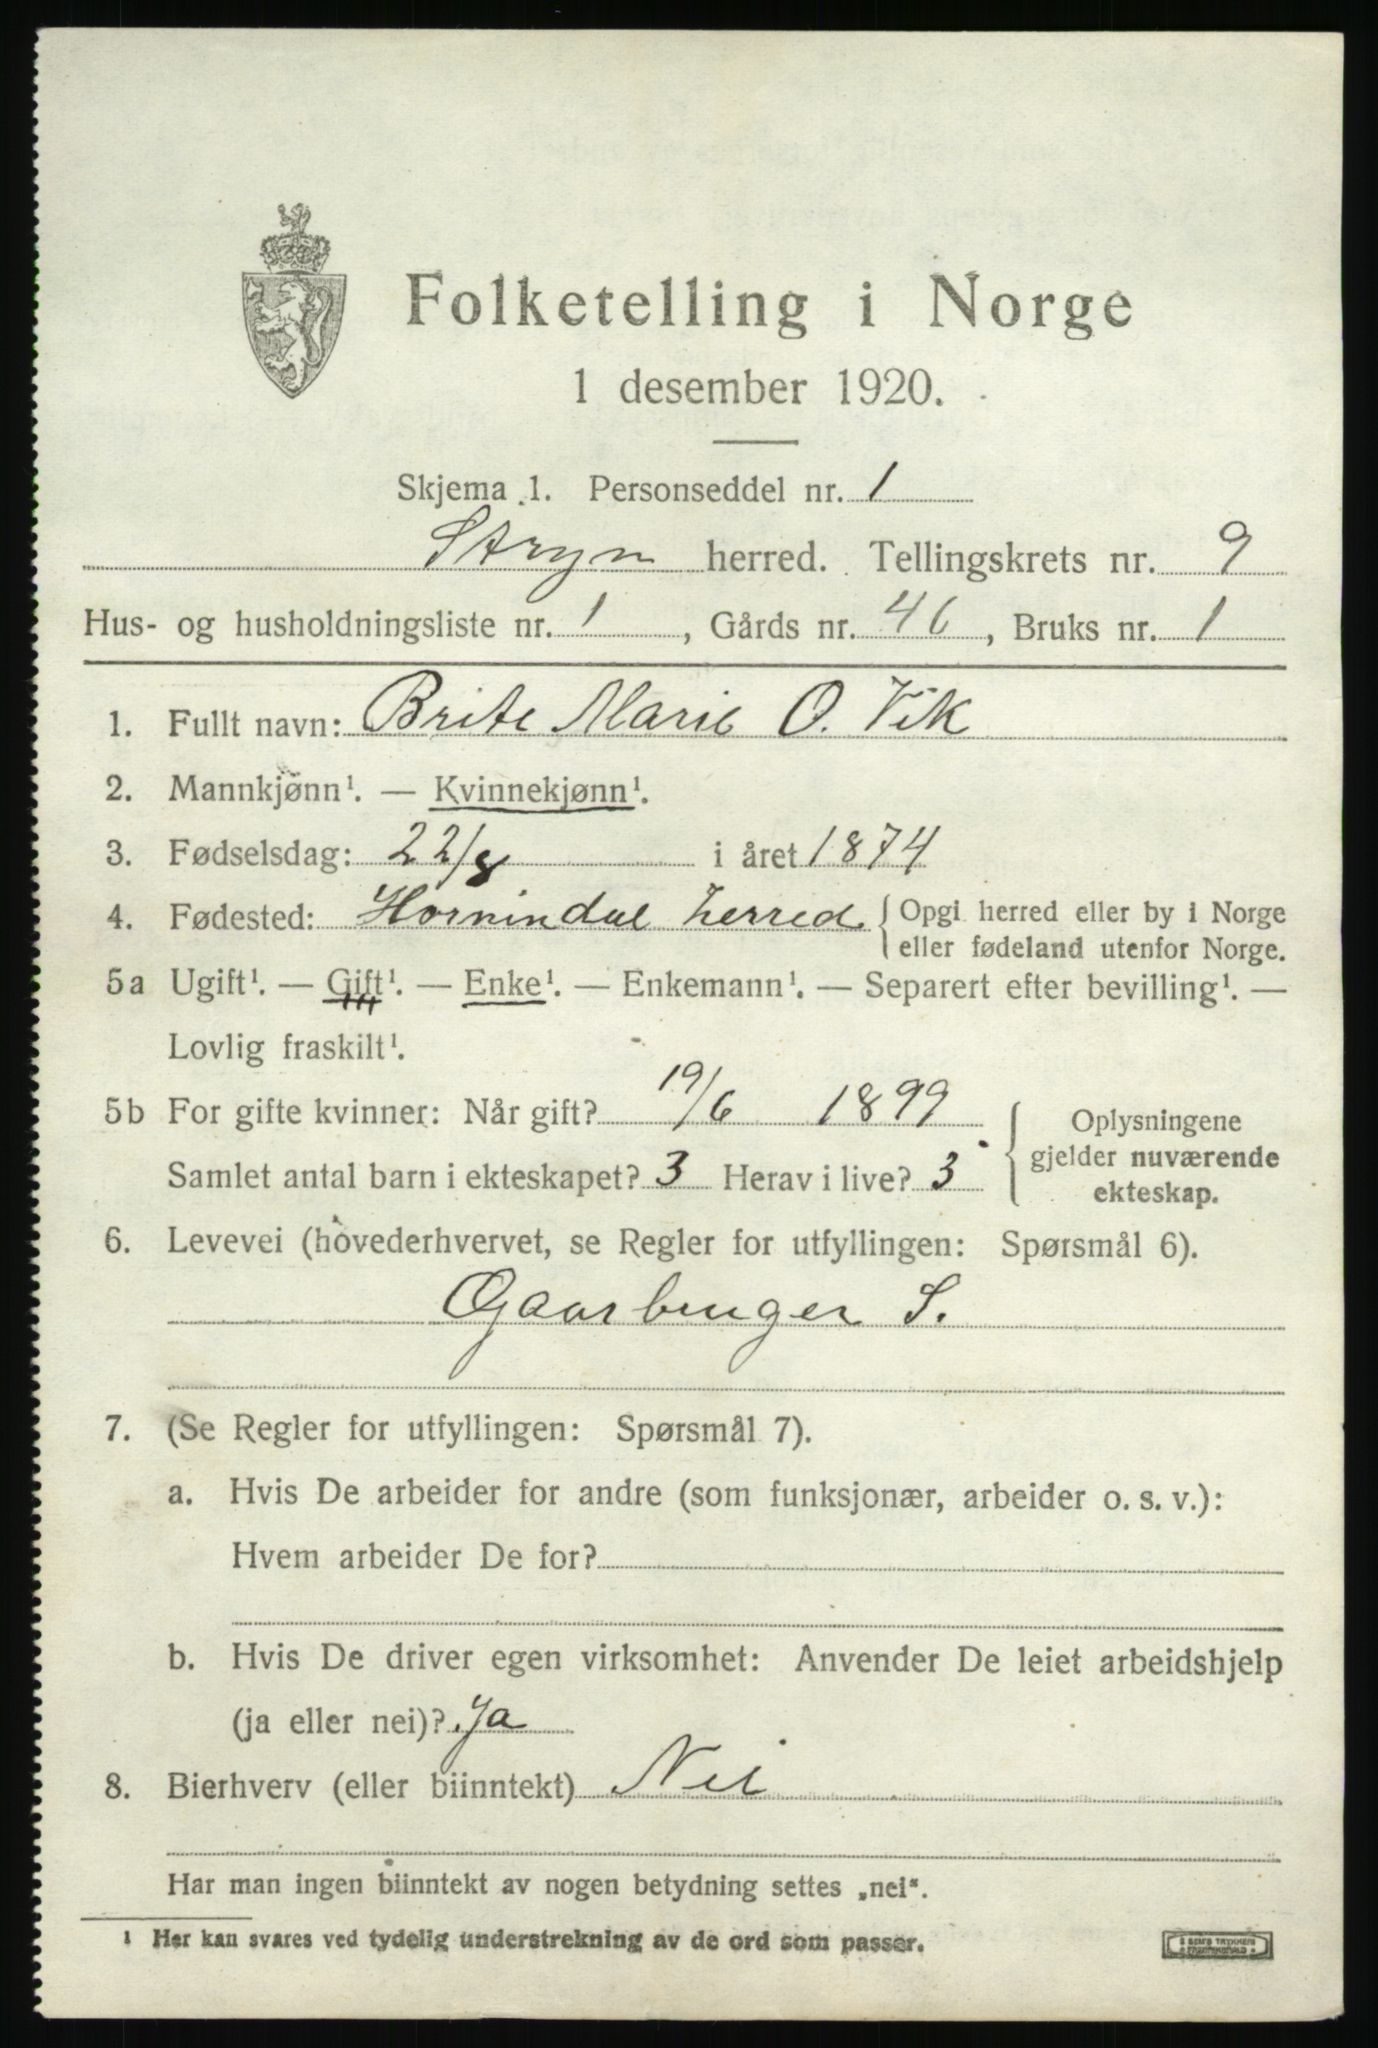 Folketelling i Norge
1 desember 1920.
Skjema 1. Personseddel nr. 1
Stryn herred. Tellingskrets nr. 9
Hus- og husholdningsliste nr. 1, Gårds nr. 46, Bruks nr. 1
1. Fullt navn: Brite Marie O. Vik
2. Mannkjønn¹. — Kvinnekjønn¹.
3. Fødselsdag: 22/8 i året 1874
4. Fødested: Hornindal herred { Opgi herred eller by i Norge
eller fødeland utenfor Norge.
5a Ugift¹. — Gift¹. — Enke¹. — Enkemann¹. — Separert efter bevilling¹. —
Lovlig fraskilt¹.
5b For gifte kvinner: Når gift? 19/6 1899
Samlet antal barn i ekteskapet? 3 Herav i live? 3
{ Oplysningene
gjelder nuværende
ekteskap.
6. Levevei (hovederhvervet, se Regler for utfyllingen: Spørsmål 6).
Gaarbruger S.
7. (Se Regler for utfyllingen: Spørsmål 7).
a. Hvis De arbeider for andre (som funksjonær, arbeider o. s. v.):
Hvem arbeider De for?
b. Hvis De driver egen virksomhet: Anvender De leiet arbeidshjelp
(ja eller nei)? Ja
8. Bierhverv (eller biinntekt) Nei
Har man ingen biinntekt av nogen betydning settes „nei".
¹ Her kan svares ved tydelig understrekning av de ord som passer.